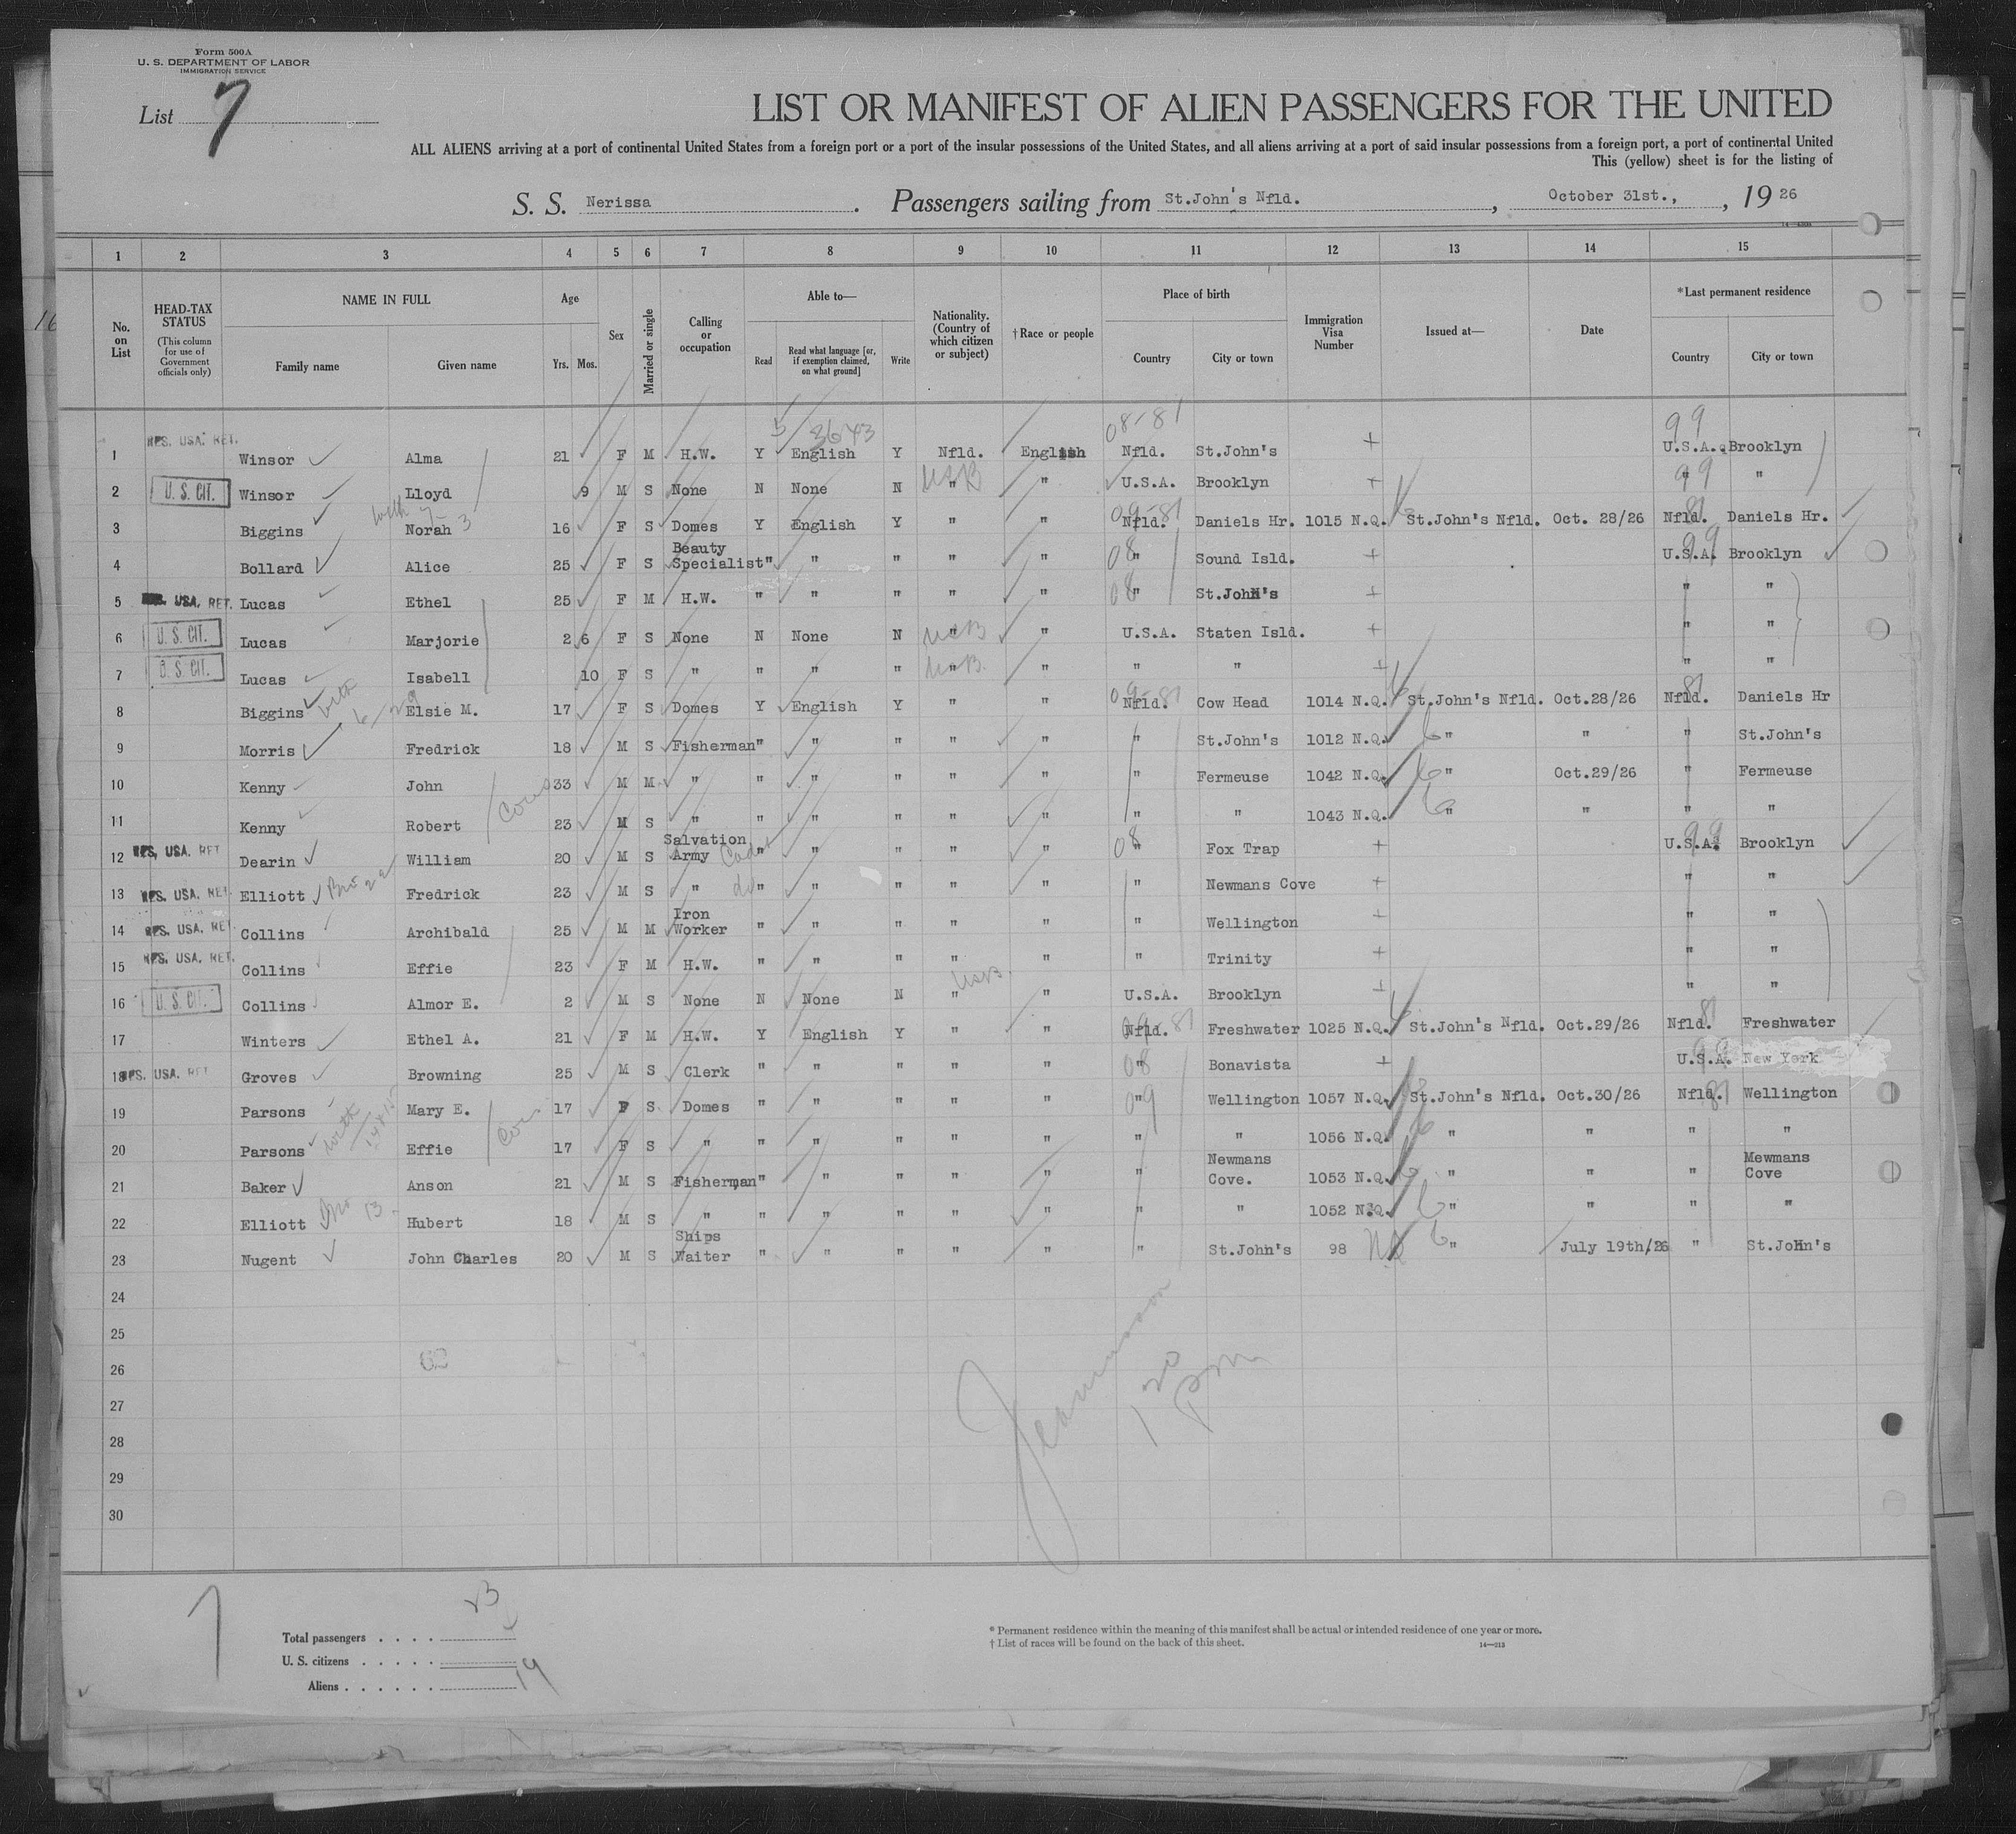 Form 500A
U. S. DEPARTMENT OF LABOR
IMMIGRATION SERVICE
List 7
LIST OR MANIFEST OF ALIEN PASSENGERS FOR THE UNITED
ALL ALIENS arriving at a port of continental United States from a foreign port or a port of the insular possessions of the United States, and all aliens arriving at a port of said insular possessions from a foreign port, a port of continental United
This (yellow) sheet is for the listing of
S. S. Nerissa . Passengers sailing from St.John's Nfld. , October 31st., , 19 26
1 2 3 4 5 6 7 8 9 10 11 12 13 14 15
No. on List
HEAD-TAX STATUS (This column for use of Government officials only)
NAME IN FULL
Family name Given name
Age
Yrs. Mos.
Sex
Married or single
Calling or occupation
Able to—
Read Read what language [or, if exemption claimed, on what ground] Write
Nationality. (Country of which citizen or subject)
† Race or people
Place of birth
Country City or town
Immigration Visa Number
Issued at—
Date
* Last permanent residence
Country City or town
5 3643 08-81 99
1 RES. USA. RET. Winsor Alma 21 F M H.W. Y English Y Nfld. English Nfld. St.John's + U.S.A. Brooklyn
2 U. S. CIT. Winsor Lloyd 9 M S None N None N " USB " U.S.A. Brooklyn + " 99 "
3 Biggins Norah 16 F S Domes Y English Y " " Nfld. 09-81 Daniels Hr. 1015 N.Q. St.John's Nfld. Oct. 28/26 Nfld. 81 Daniels Hr.
4 Bollard Alice 25 F S Beauty Specialist " " " " " " 08 Sound Isld. + U.S.A. 99 Brooklyn
5 RES. USA. RET. Lucas Ethel 25 F M H.W. " " " " " " 08 St.John's + " "
6 U. S. CIT. Lucas Marjorie 2 6 F S None N None N " USB " U.S.A. Staten Isld. + " "
7 U. S. CIT. Lucas Isabell 10 F S " " " " " USB " " " + " "
8 Biggins with 6/29 Elsie M. 17 F S Domes Y English Y " " Nfld. 09-81 Cow Head 1014 N.Q. St.John's Nfld. Oct.28/26 Nfld. 81 Daniels Hr
9 Morris Fredrick 18 M S Fisherman " " " " " " St.John's 1012 N.Q. 6 " " " St.John's
10 Kenny John 33 M M " " " " " " " Fermeuse 1042 N.Q. 6 " Oct.29/26 " Fermeuse
11 Kenny Robert Cous 23 M S " " " " " " " " 1043 N.Q. 6 " " " "
12 RES. USA. RET. Dearin William 20 M S Salvation Army Cadet " " " " " " 08 Fox Trap + U.S.A. 99 Brooklyn
13 RES. USA. RET. Elliott Bro 22 Fredrick 23 M S " do " " " " " " Newmans Cove + " "
14 RES. USA. RET. Collins Archibald 25 M M Iron Worker " " " " " " Wellington + " "
15 RES. USA. RET. Collins Effie 23 F M H.W. " " " " " " Trinity + " "
16 U. S. CIT. Collins Almor E. 2 M S None N None N " USB " U.S.A. Brooklyn + " "
17 Winters Ethel A. 21 F M H.W. Y English Y " " Nfld. 09-81 Freshwater 1025 N.Q. St.John's Nfld. Oct.29/26 Nfld. 81 Freshwater
18 RES. USA. RET Groves Browning 25 M S Clerk " " " " " " 08 Bonavista + U.S.A. New York
19 Parsons Mary E. 17 F S Domes " " " " " " 09 Wellington 1057 N.Q. St.John's Nfld. Oct.30/26 Nfld. 81 Wellington
20 Parsons Effie Cous 17 F S " " " " " " " " 1056 N.Q. 6 " " " "
21 Baker Anson 21 M S Fisherman " " " " " " Newmans Cove. 1053 N.Q. 6 " " " Mewmans Cove
22 Elliott Bro 13 Hubert 18 M S " " " " " " " " 1052 N.Q. 6 " " " "
23 Nugent John Charles 20 M S Ships Waiter " " " " " " St.John's 98 NQ 6 " July 19th/26 " St.John's
24
25
26
27
28
29
30
1 20 pm
Total passengers . . . . 23
U. S. citizens . . . . .
Aliens . . . . . . 19
* Permanent residence within the meaning of this manifest shall be actual or intended residence of one year or more.
† List of races will be found on the back of this sheet. 14—215